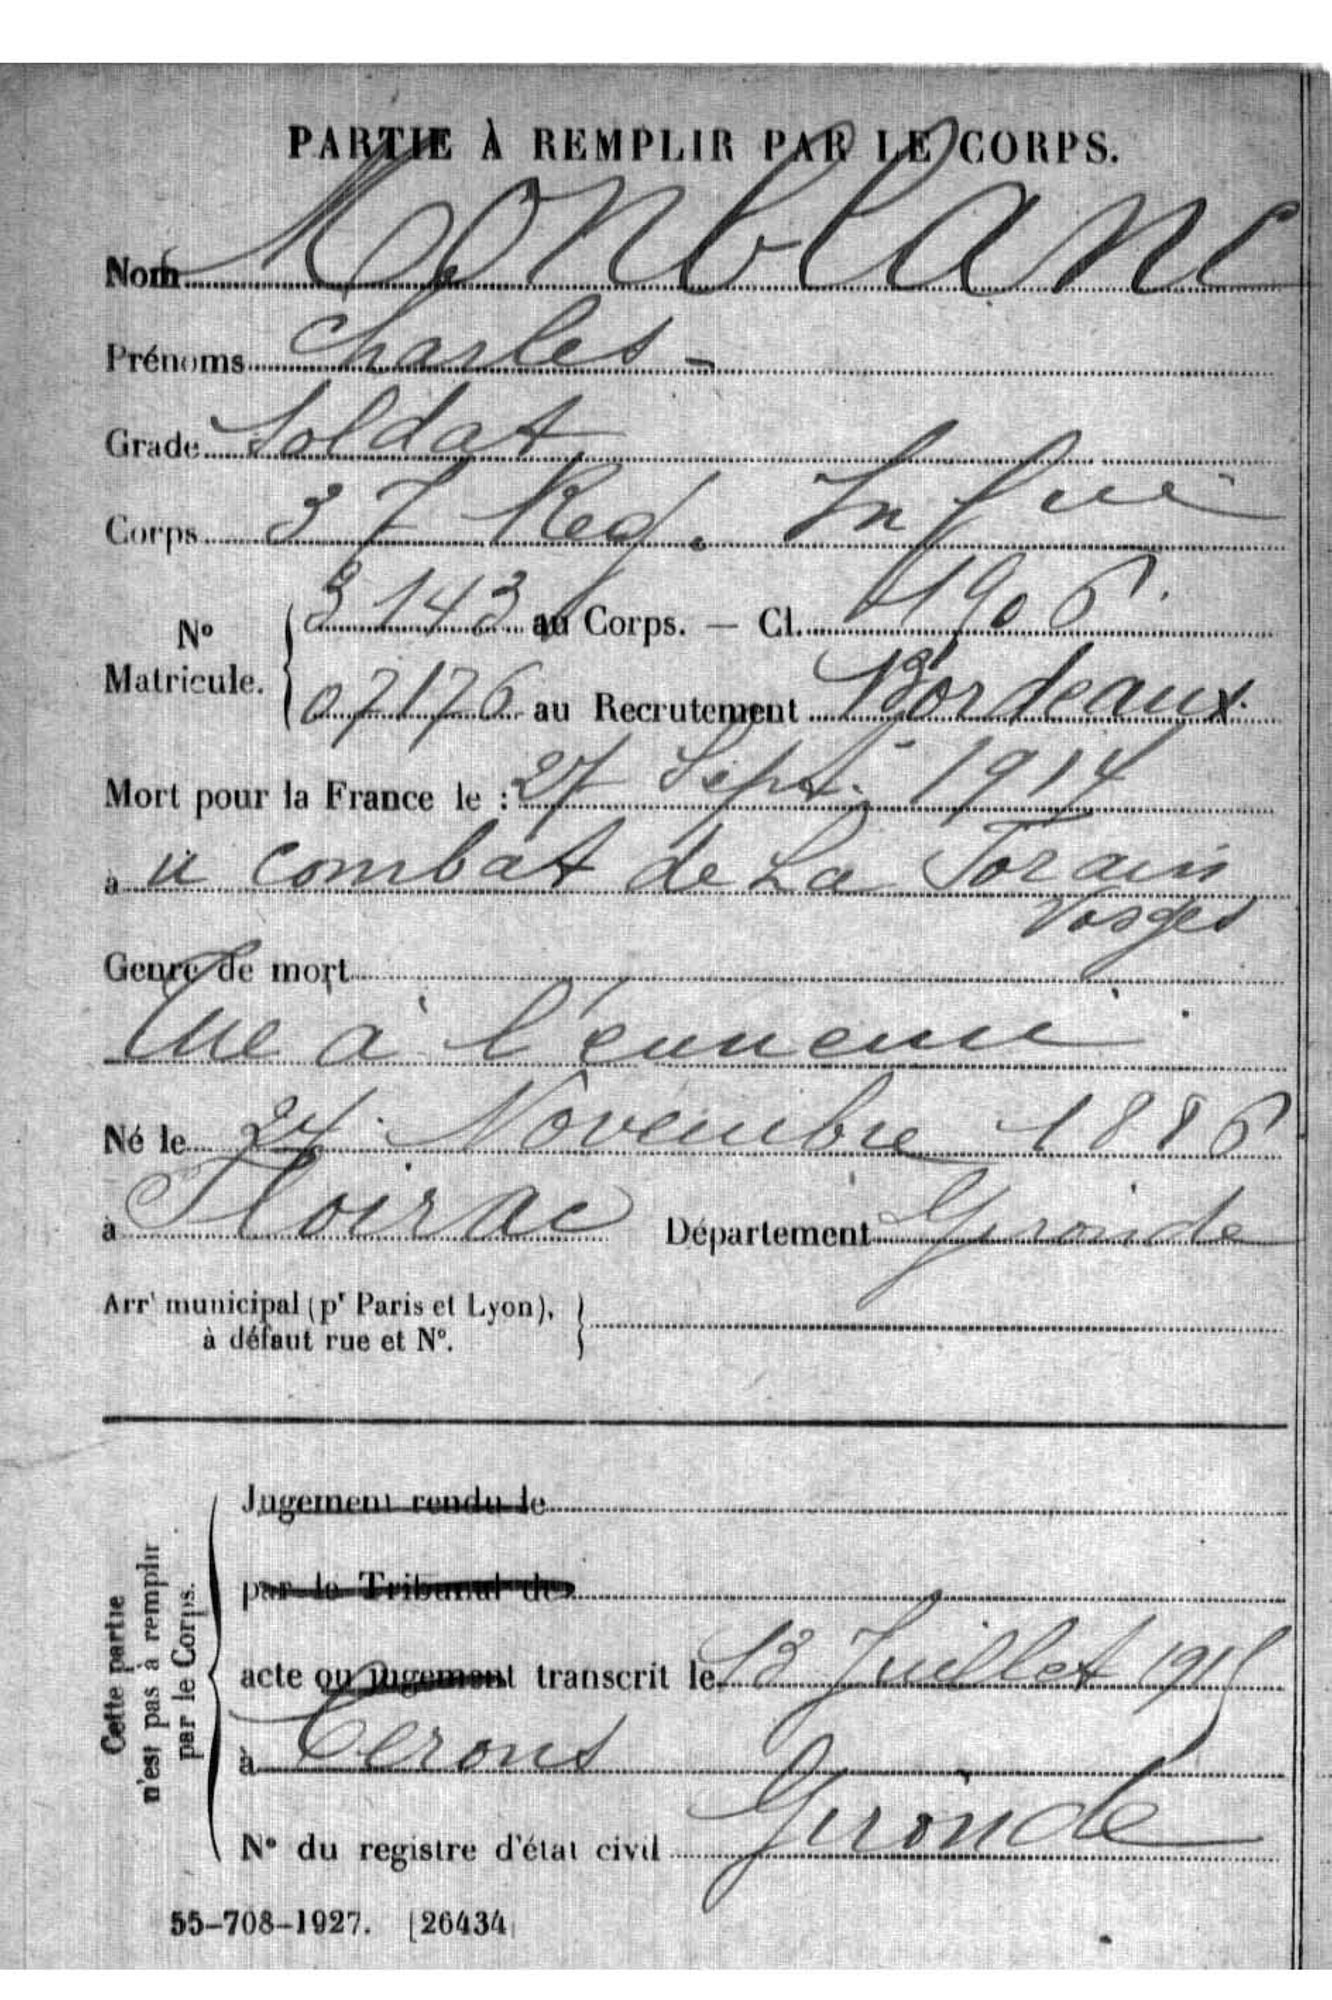 PARTIE À REMPLIR PAR LE CORPS.
Nom Monblanc
Prénoms Charles -
Grade Soldat
Corps 37 Reg. Infrie
N° Matricule. 3143 au Corps. — Cl. 1906.
07176 au Recrutement Bordeaux.
Mort pour la France le : 27 Sept. 1914
à u combat de La
Vosges
Genre de mort
Tué à l'ennemi
Né le 24 Novembre 1886
à Floirac Département Gironde
Arrt municipal (pr Paris et Lyon),
à défaut rue et N°.
Cette partie
n'est pas à remplir
par le Corps.
Jugement rendu le
par le Tribunal de
acte ou jugement transcrit le 13 Juillet 1915
à Cerons
Gironde
N° du registre d'état civil
55-708-1927. [26434